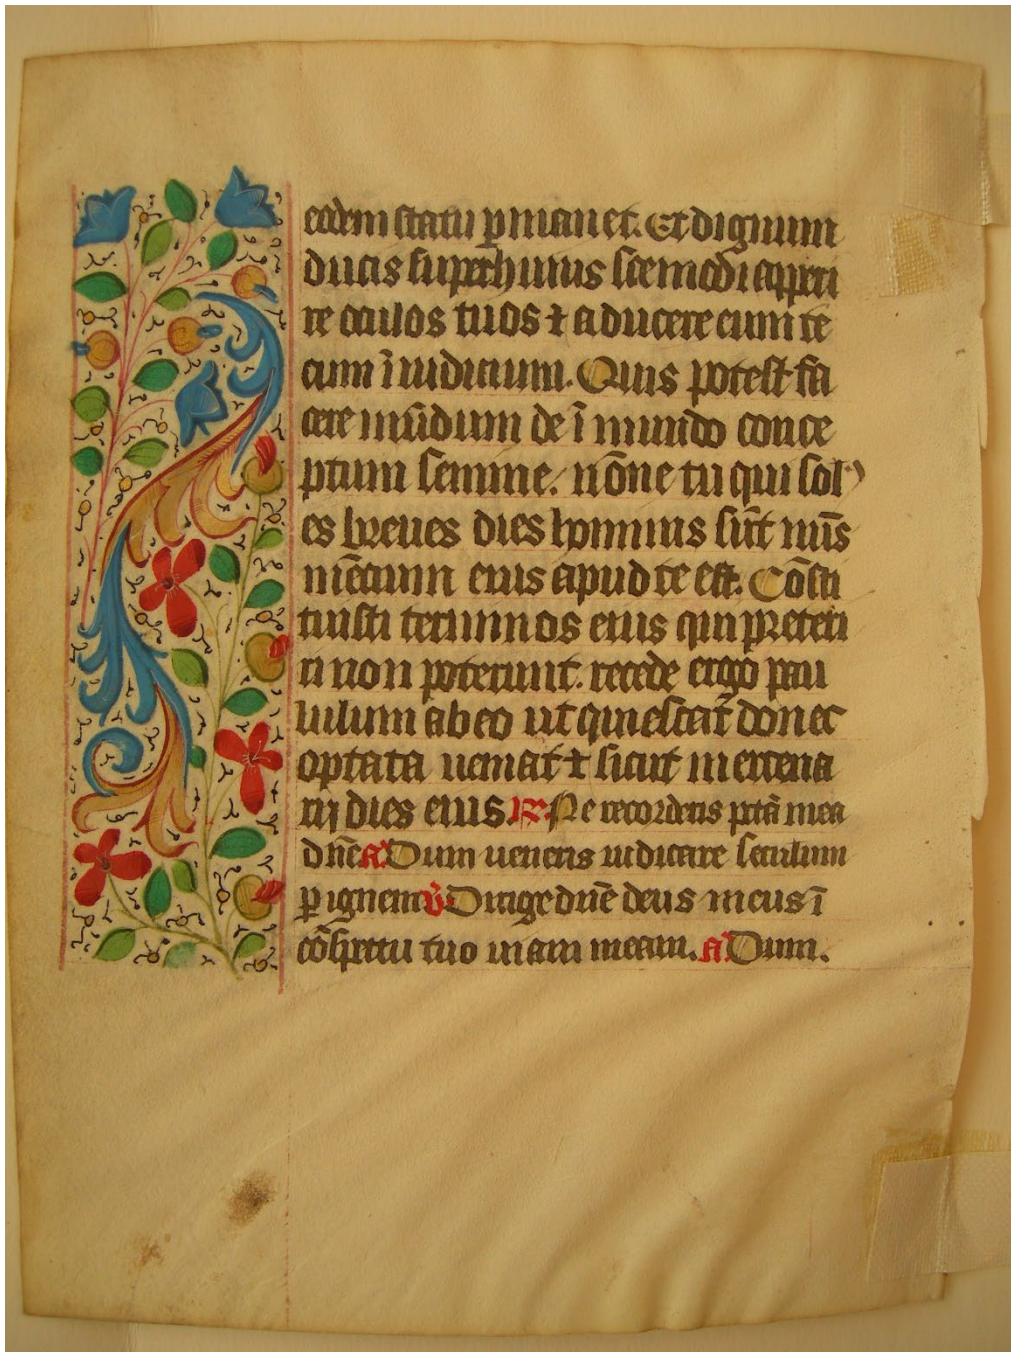 eodem statu ꝑmanet. Et dignum
ducis super huius scemodi apperi
re oculos tuos ⁊ aducere eum te
cum ī iudicium. Quis potest fa
cere mūdum de ī mundo conce
ptum semine. nōne tu qui sol᷒
es breues dies hominis sūt nūs
mēcium eius apud te est. Cōsti
tuisti terminos eius qui preteri
ri non poterunt. recede ergo pau
lulum ab eo ut quiescat᷑ donec
optata ueniat ⁊ sicut mercena
rij dies eius. ℟. Ne recorderis pctā mea
dñe a Dum ueneris iudicare seculum
ꝑ ignem ℣ Dirige dñe deus meus ī
cōspectu tuo uiam meam. a Dum.